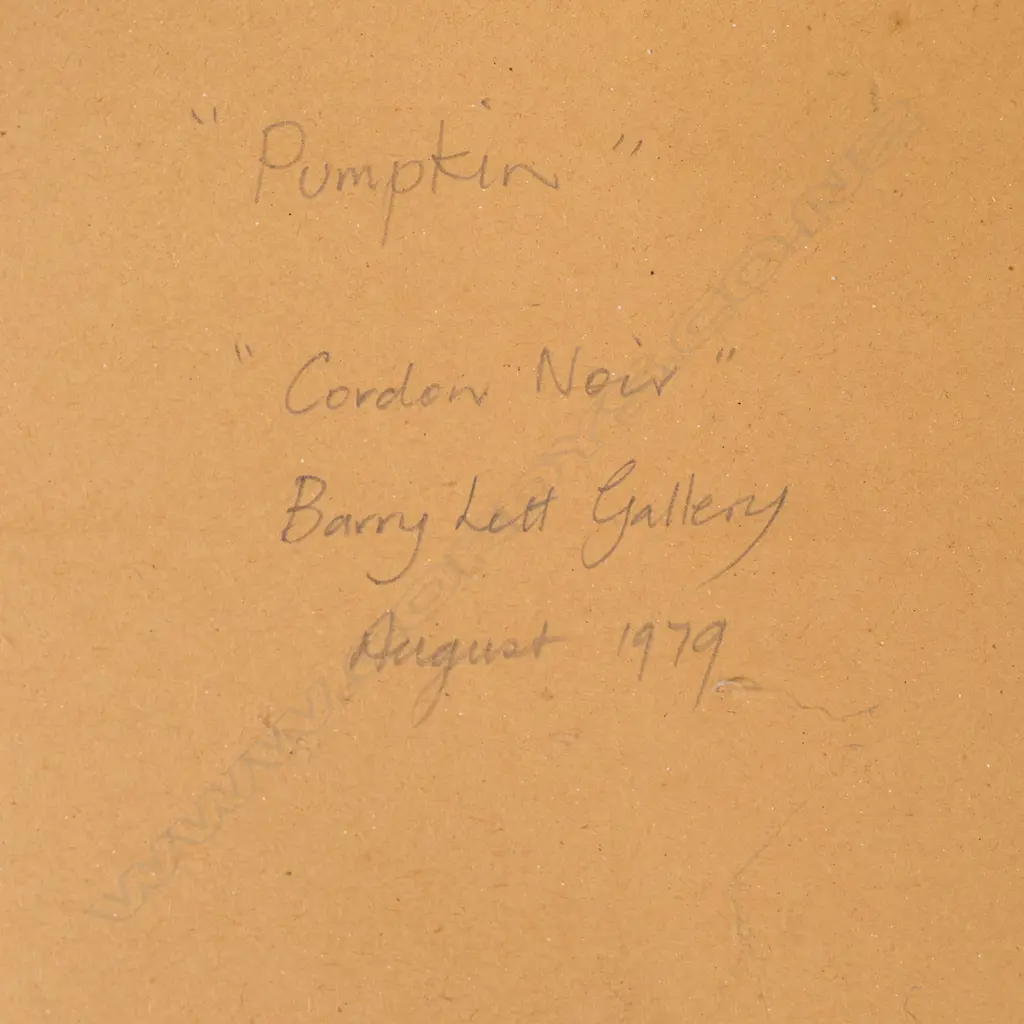 "Pumpkin"
"Cordon Noir"
Barry Lett Gallery
August 1979